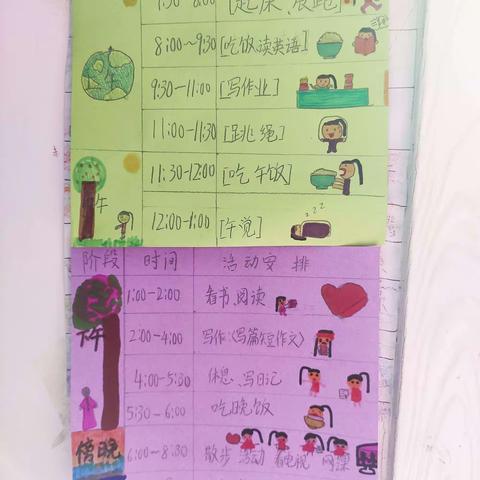 7:30-8:00 [起床、晨跑]
8:00~9:30 [吃饭读英语]
9:30-11:00 [写作业]
11:00-11:30 [跳绳]
11:30-12:00 [吃午饭]
午
12:00-1:00 [午说]
zzz
阶段 时间 活动安排
1:00-2:00 看书、阅读
下午
2:00-4:00 写作:《写篇短作文》
4:00-5:30 休息、写日记
5:30-6:00 吃晚饭
傍晚
6:00-8:30 散步 活动 看电视 网课